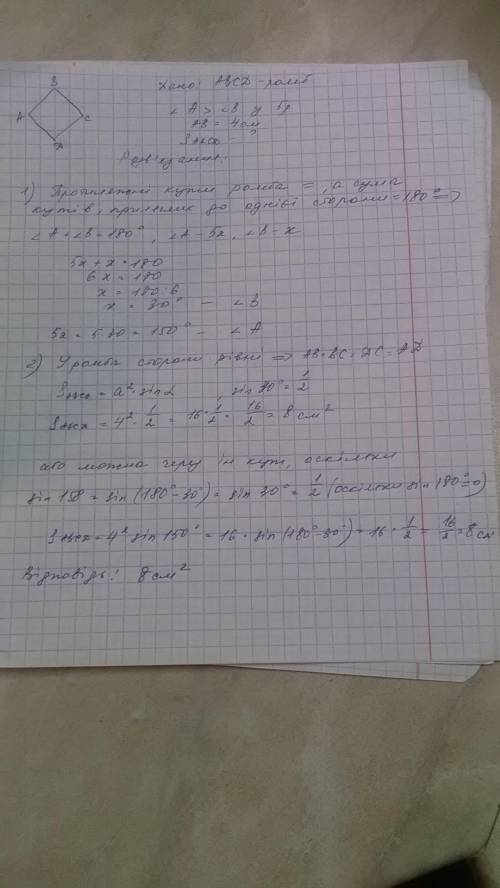 B
A
C
Д
Дано: ABCD - ромб
∠A > ∠B у 5р
AB = 4см
S - ?
Розв'язання:
1) Протилежні кути ромба =, а сума
кутів, прилеглих до однієї сторони = 180° =>
∠A + ∠B = 180°, ∠A - 5x, ∠B - x
5x + x = 180
6x = 180
x = 180:6
x = 30° - ∠B
5x = 5·30 = 150° - ∠A
2) У ромба сторони рівні => AB = BC = DC = AD
S = a² · sin α, sin 30° = 1/2
S = 4² · 1/2 = 16 · 1/2 = 16/2 = 8 см²
або можна через ін кут, оскільки
sin 150 = sin (180° - 30°) = sin 30° = 1/2 (оскільки sin 180° = 0)
S = 4² sin 150° = 16 · sin (180° - 30°) = 16 · 1/2 = 16/2 = 8 см
Відповідь: 8 см²